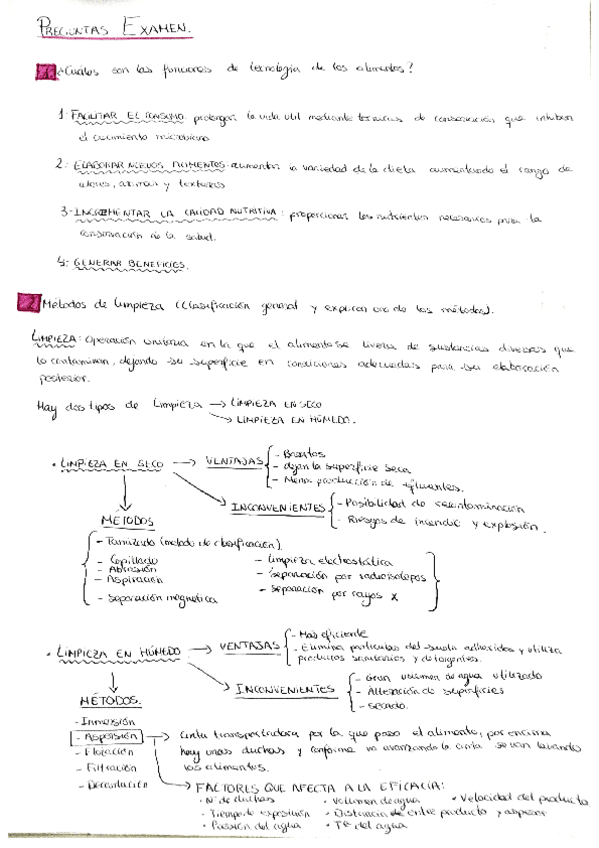 PREGUNTAS EXAMEN.
1. ¿Cuáles son las funciones de tecnología de los alimentos?
1. FACILITAR EL CONSUMO: prolongar la vida util mediante tecnicas de conservación que inhiben
el crecimiento microbiano
2. ELABORAR NUEVOS ALIMENTOS: aumentar la variedad de la dieta aumentando el rango de
sabores, aromas y texturas
3. INCREMENTAR LA CALIDAD NUTRITIVA: proporcionar los nutrientes necesarios para la
conservación de la salud.
4. GENERAR BENEFICIOS.
2. Metodos de limpieza (Clasificación general y explica uno de los métodos).
LIMPIEZA: Operación unitaria en la que el alimento se libera de sustancias diversas que
lo contaminan, dejando su superficie en condiciones adecuadas para su elaboración
posterior.
Hay dos tipos de limpieza → LIMPIEZA EN SECO
→ LIMPIEZA EN HÚMEDO.
• LIMPIEZA EN SECO → VENTAJAS
- Baratos
- dejan la superficie seca
- Menos producción de efluentes.
INCONVENIENTES
- Posibilidad de recontaminación
- Riesgos de incendio y explosión.
MÉTODOS
- Tamizado (metodo de clasificación)
- Cepillado
- Abrasión
- Aspiración
- separación magnetica
- limpieza electrostática
- separación por radioisotopos
- separación por rayos X
• LIMPIEZA EN HÚMEDO → VENTAJAS
- Más eficiente
- Elimina particulas del suelo adheridos y utiliza
productos sanitarios y detergentes.
INCONVENIENTES
- Gran volumen de agua utilizado
- Alteración de superficies
- secado.
MÉTODOS.
- Inmersión
- Aspersión → Cinta transportadora por la que pasa el alimento, por encima
hay unas duchas y conforme va avanzando la cinta se van lavando
los alimentos.
- Flotación
- Filtración
- Decantación
→ FACTORES QUE AFECTA A LA EFICACIA:
• Nº de duchas • Volumen de agua • Velocidad del producto
• Tiempo de exposición • Distancia de entre producto y aspersor
• Presión del agua • Tª del agua